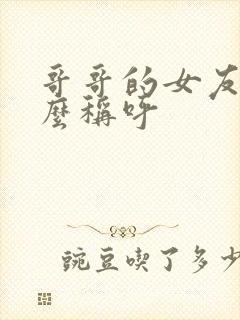 哥哥的女友
麼稱呼
豌豆喫了多少